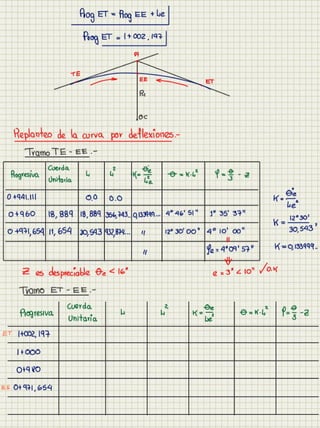 Prog ET = Prog EE + Le
Prog ET = 1+002,197
PI
TE
EE
ET
Rc
OC
Replanteo de la curva por deflexiones.-
Tramo TE - EE.-
Progresiva Cuerda Unitaria L L² K = θe/Le² θ = K·L² φ = θ/3 - Z
0+941.111 0,0 0.0
0+960 18,889 18,889 356,743... 0,133999... 4°46'51" 1°35'37"
0+971,654 11,654 30,543 932,874... " 12°30'00" 4°10'00"
" φe = 4°09'57"
K = θe°/Le²
K = 12°30'/30,543²
K = 0,133999..
Z es despreciable θe < 16°
e = 3" < 10" ✓o.k
Tramo ET - EE.-
Progresiva Cuerda Unitaria L L² K = θe/Le² θ = K·L² φ = θ/3 - Z
ET 1+002,197
1+000
0+980
EE 0+971,654